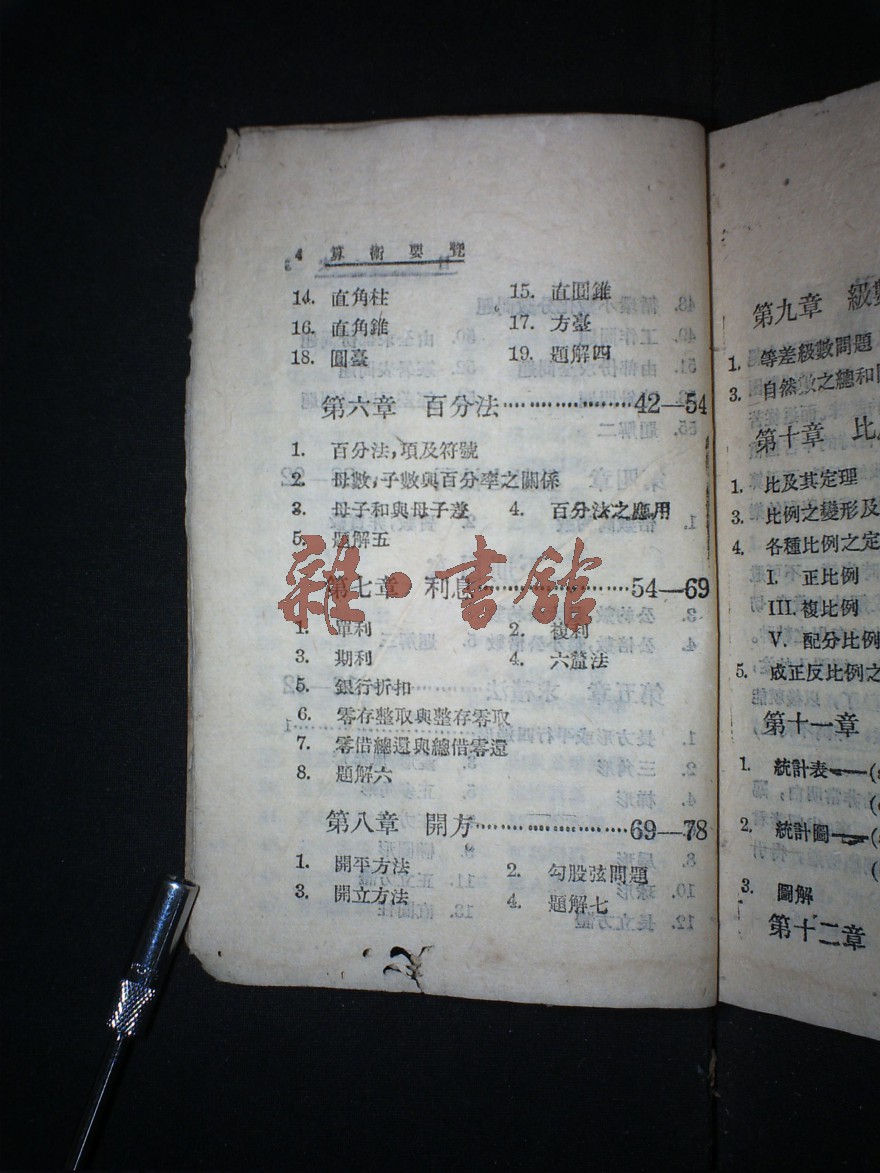 4 算術要覽
14. 直角柱 15. 直圓錐
16. 直角錐 17. 方臺
18. 圓臺 19. 題解四
第六章 百分法……………………42—54
1. 百分法,項及符號
2. 母數,子數與百分率之關係
3. 母子和與母子差 4. 百分法之應用
5. 題解五
第七章 利息……………………54—69
1. 單利 2. 複利
3. 期利 4. 六釐法
5. 銀行折扣
6. 零存整取與整存零取
7. 零借總還與總借零還
8. 題解六
第八章 開方……………………69—78
1. 開平方法 2. 勾股弦問題
3. 開立方法 4. 題解七
雜·書館
第九章 級數
1. 等差級數問題
3. 自然數之總和
第十章 比
1. 比及其定理
3. 比例之變形及
4. 各種比例之定
I. 正比例
III. 複比例
V. 配分比例
5. 成正反比例之
第十一章
1. 統計表—(
2. 統計圖—(
3. 圖解
第十二章